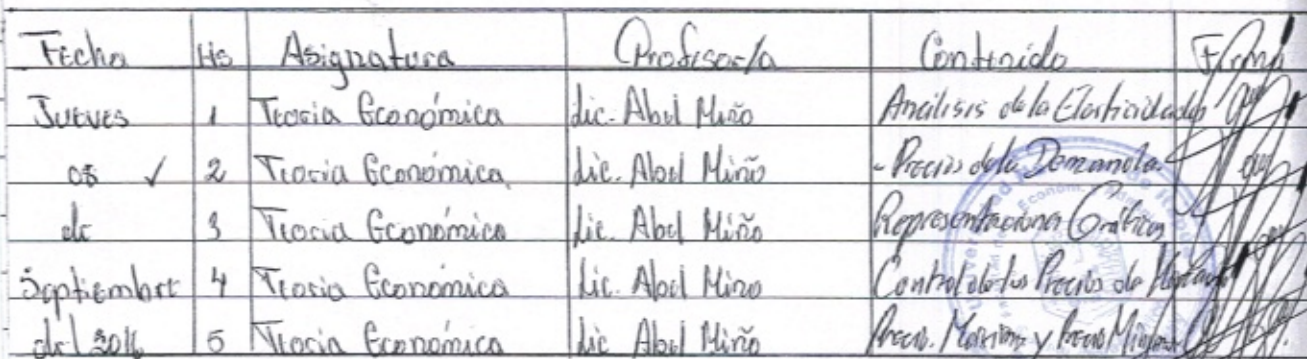 Fecha Hs Asignatura Profesor/a Contenido Firma
Jueves 1 Teoria Económica Lic. Abel Miño Análisis de la Elasticidades
08 ✓ 2 Teoria Económica Lic. Abel Miño - Precios de la Demanda.
de 3 Teoria Económica Lic. Abel Miño Representaciones Gráficas
Septiembre 4 Teoria Económica Lic. Abel Miño Control de los Precios de
del 2016 5 Teoria Económica Lic Abel Miño Precio. Maximo y Precio Minimo